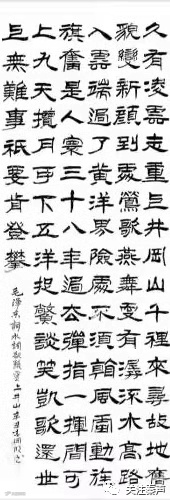 久有凌雲志重上井岡山千裡來尋故地舊
貌變新顔到處鶯歌燕舞更有潺流水高路
入雲端過了黄洋界險處不須看風雷動旌
旗奮是人寰三十八年過去彈指一揮間可
上九天攬月可下五洋捉鱉談笑凱歌還世
上無難事祇要肯登攀
毛澤東詞水調歌頭重上井岡山辛丑
关注秦声